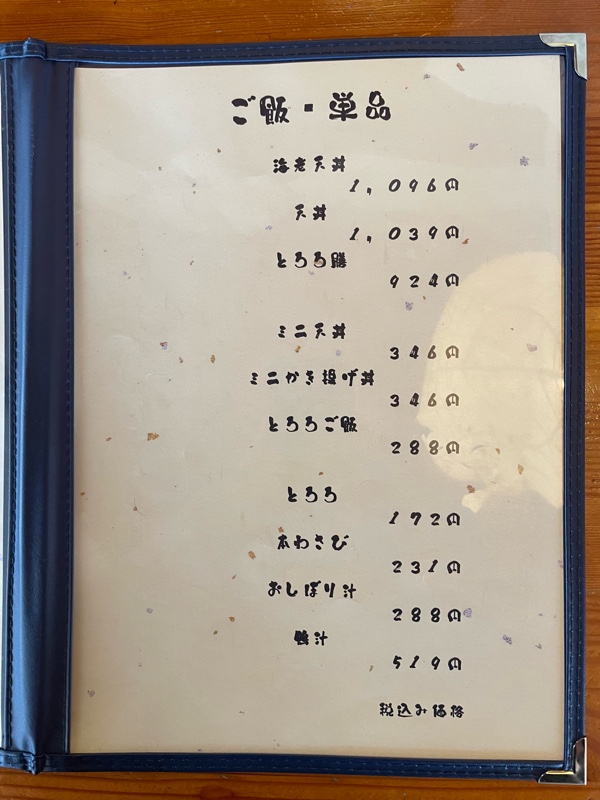 ご飯・単品
海老天丼
1,096円
天丼
1,039円
とろろ膳
924円
ミニ天丼
346円
ミニかき揚げ丼
346円
とろろご飯
288円
とろろ
172円
本わさび
231円
おしぼり汁
288円
鴨汁
519円
税込み価格